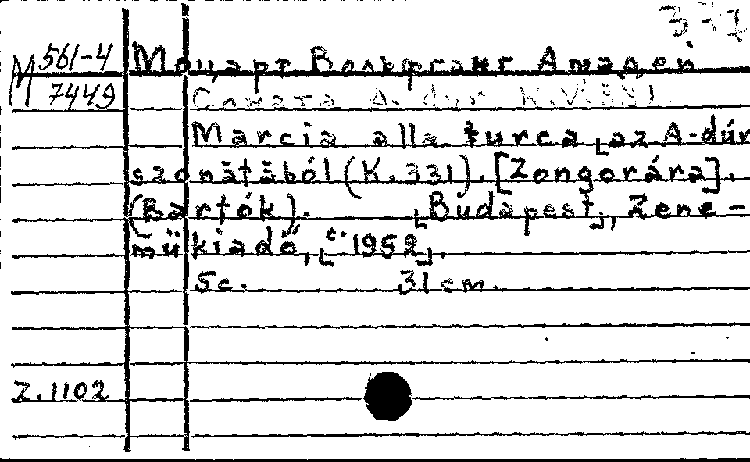 337
М 561-4 Моцарт Вольфганг Амадей
7449 Соната A. dur K.V.331
Marcia alla turca [az A-dúr
szonátából (K.331). [Zongorára].
(Bartók). [Budapest], Zene-
műkiadó, [c. 1952].
5 c. 31 cm.
Z.1102